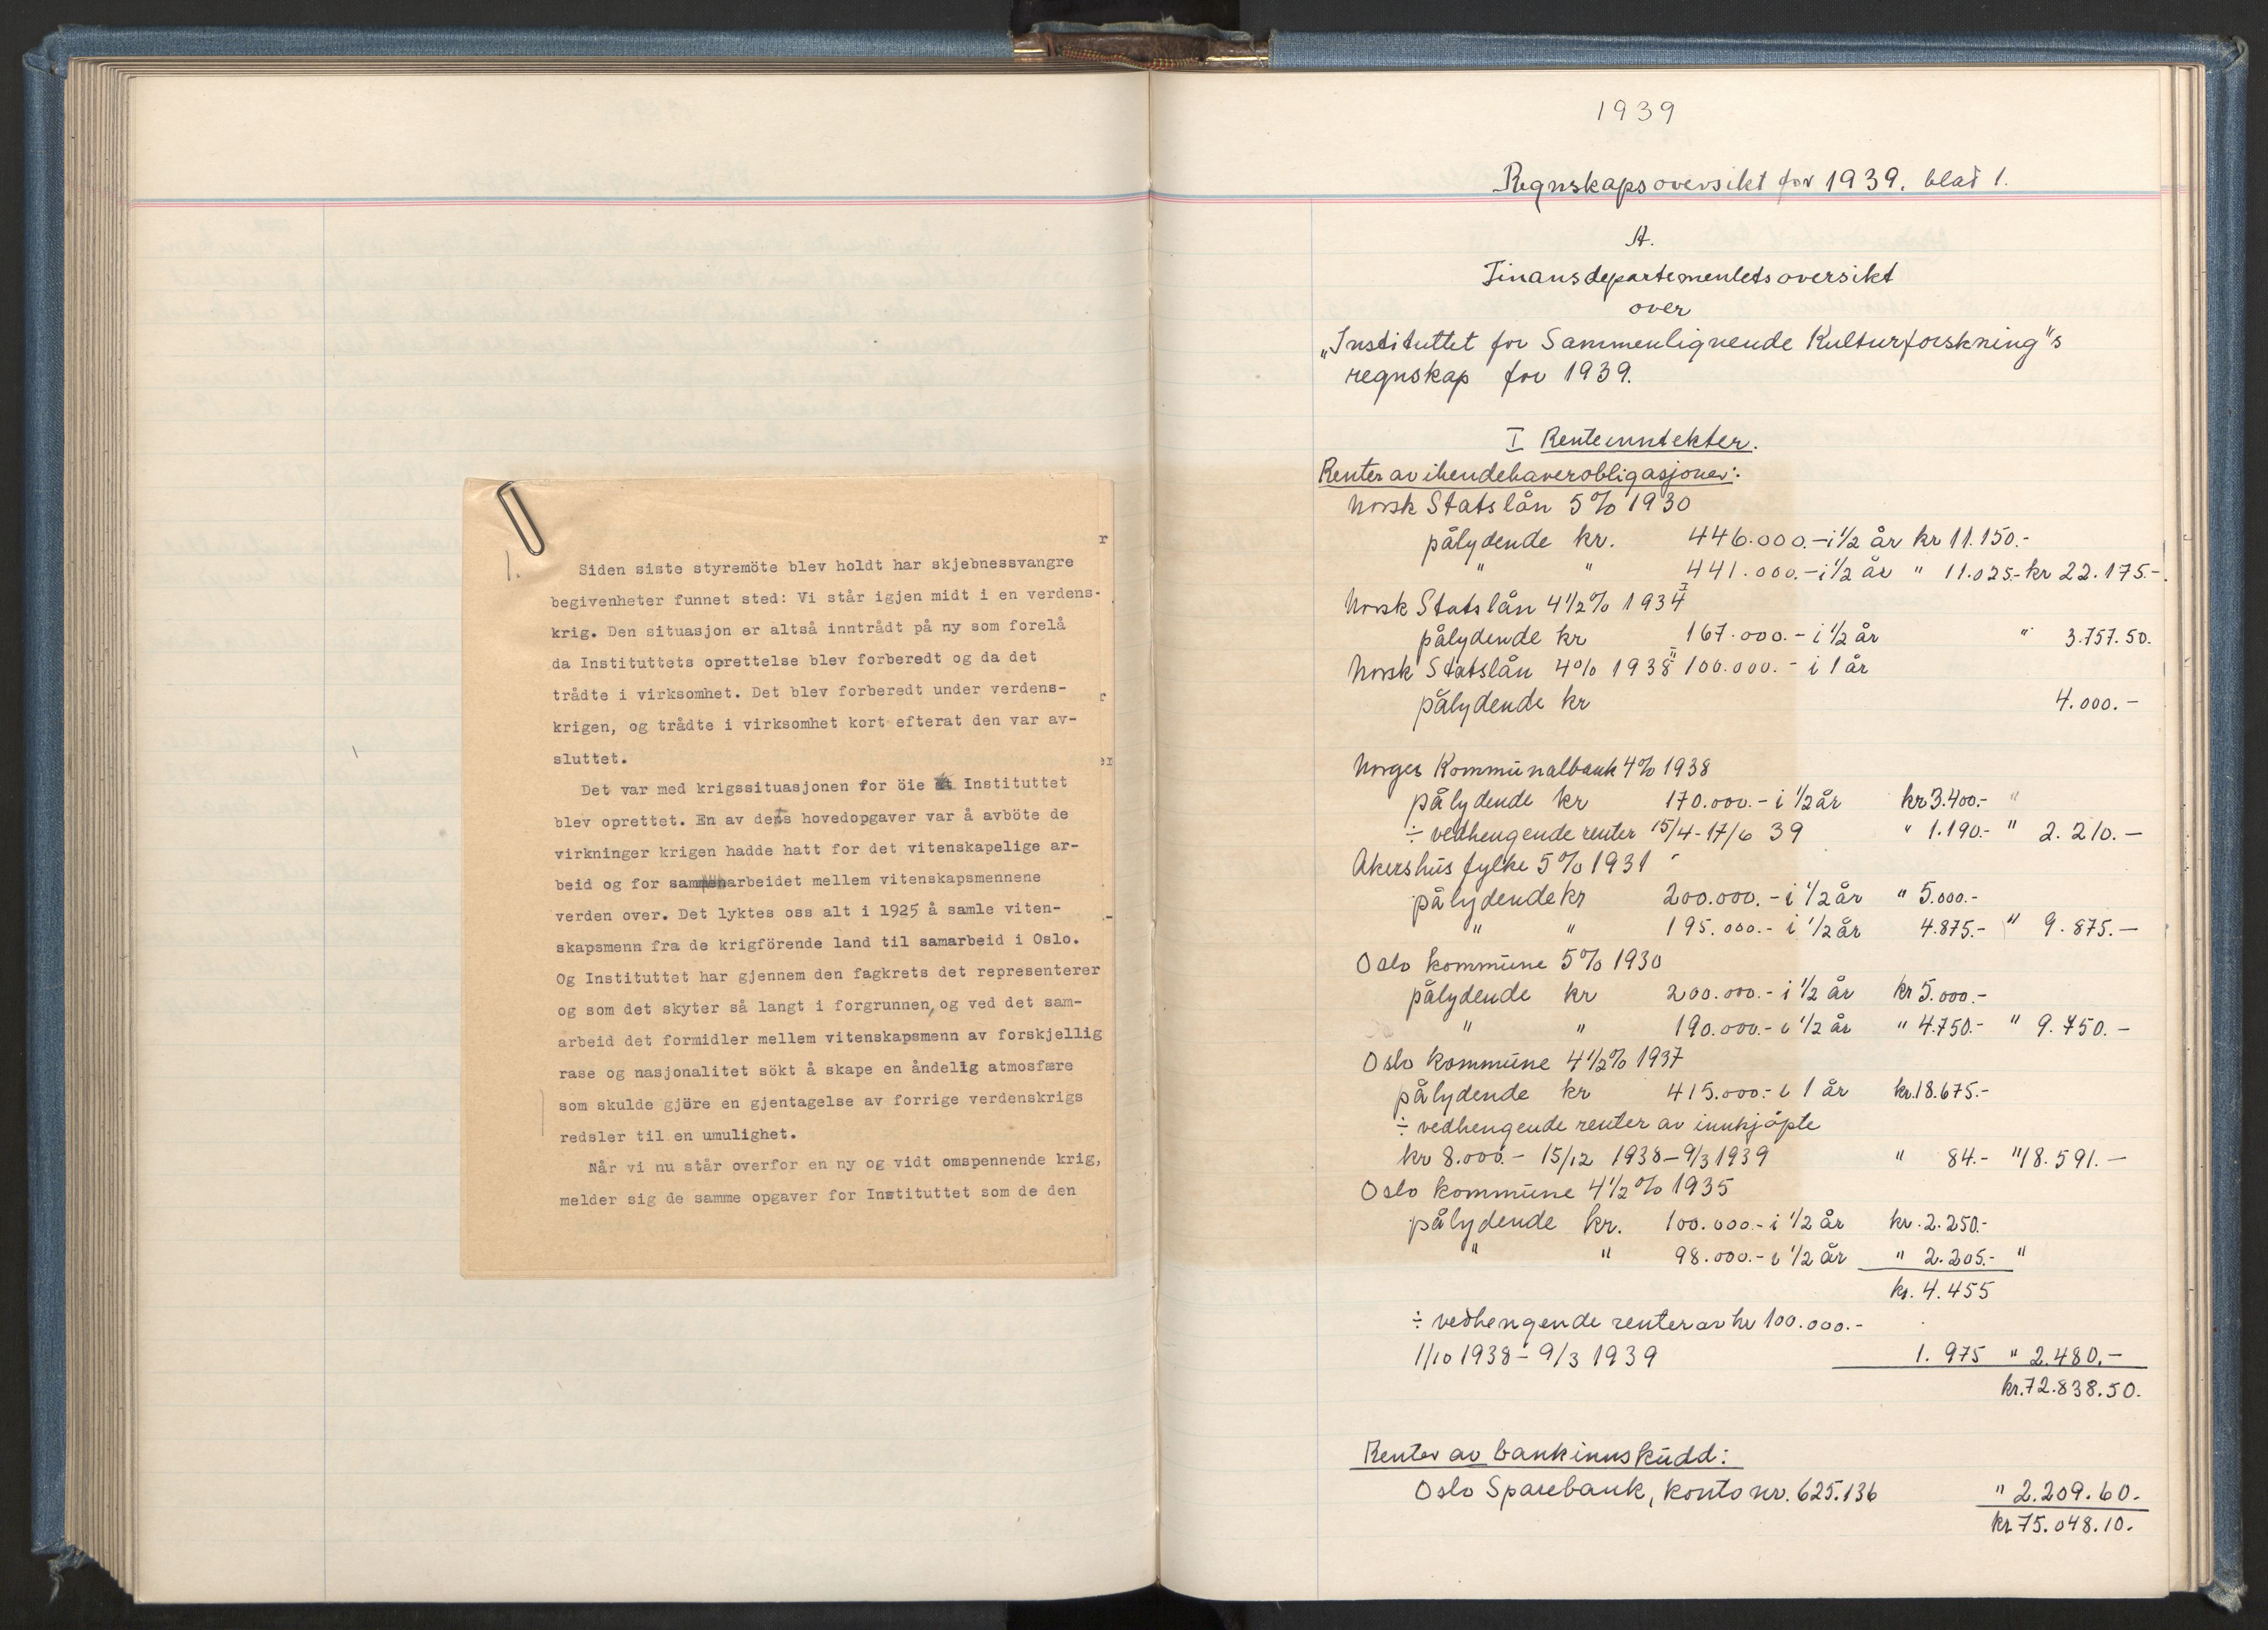 1.
Siden siste styremöte blev holdt har skjebnessvangre
begivenheter funnet sted: Vi står igjen midt i en verdens-
krig. Den situasjon er altså inntrådt på ny som forelå
da Instituttets oprettelse blev forberedt og da det
trådte i virksomhet. Det blev forberedt under verdens-
krigen, og trådte i virksomhet kort efterat den var av-
sluttet.
Det var med krigssituasjonen for öie Instituttet
blev oprettet. En av dets hovedopgaver var å avböte de
virkninger krigen hadde hatt for det vitenskapelige ar-
beid og for samarbeidet mellem vitenskapsmennene
verden over. Det lyktes oss alt i 1925 å samle viten-
skapsmenn fra de krigförende land til samarbeid i Oslo.
Og Instituttet har gjennem den fagkrets det representerer
og som det skyter så langt i forgrunnen, og ved det sam-
arbeid det formidler mellem vitenskapsmenn av forskjellig
rase og nasjonalitet sökt å skape en åndelig atmosfære
som skulde gjöre en gjentagelse av forrige verdenskrigs
redsler til en umulighet.
Når vi nu står overfor en ny og vidt omspennende krig,
melder sig de samme opgaver for Instituttet som de den
1939
Regnskapsoversikt for 1939. blad 1.
A.
Finansdepartementets oversikt
over
„Instituttet for Sammenlignende Kulturforskning"s
regnskap for 1939.
I Renteinntekter.
Renter av ihendehaverobligasjoner:
Norsk Statslån 5% 1930
pålydende kr. 446.000.- i 1/2 år kr 11.150.-
" " 441.000.- i 1/2 år " 11.025.- kr 22.175.-
Norsk Statslån 4 1/2% 1934 I
pålydende kr 167.000.- i 1/2 år " 3.757.50.
Norsk Statslån 4% 1938 II 100.000.- i 1 år
pålydende kr 4.000.-
Norges Kommunalbank 4% 1938
pålydende kr 170.000.- i 1/2 år kr 3.400.- "
÷ vedhengende renter 15/4-17/6 39 " 1.190.- " 2.210.-
Akershus fylke 5% 1931
pålydende kr 200.000.- i 1/2 år " 5.000.-
" " 195.000.- i 1/2 år 4.875.- " 9.875.-
Oslo kommune 5% 1930
pålydende kr 200.000.- i 1/2 år kr 5.000.-
" " 190.000.- i 1/2 år " 4.750.- " 9.750.-
Oslo kommune 4 1/2% 1937
pålydende kr 415.000.- i 1 år kr. 18.675.-
÷ vedhengende renter av innkjøpte
kr 8.000.- 15/12 1938-9/3 1939 " 84.- " 18.591.-
Oslo kommune 4 1/2% 1935
pålydende kr. 100.000.- i 1/2 år kr. 2.250.-
" " 98.000.- i 1/2 år " 2.205.- "
kr. 4.455
÷ vedhengende renter av kr 100.000.-
1/10 1938 - 9/3 1939 1.975 " 2.480.-
kr. 72.838.50.
Renter av bankinnskudd:
Oslo Sparebank, konto nr. 625.136 " 2.209.60.-
kr 75.048.10.